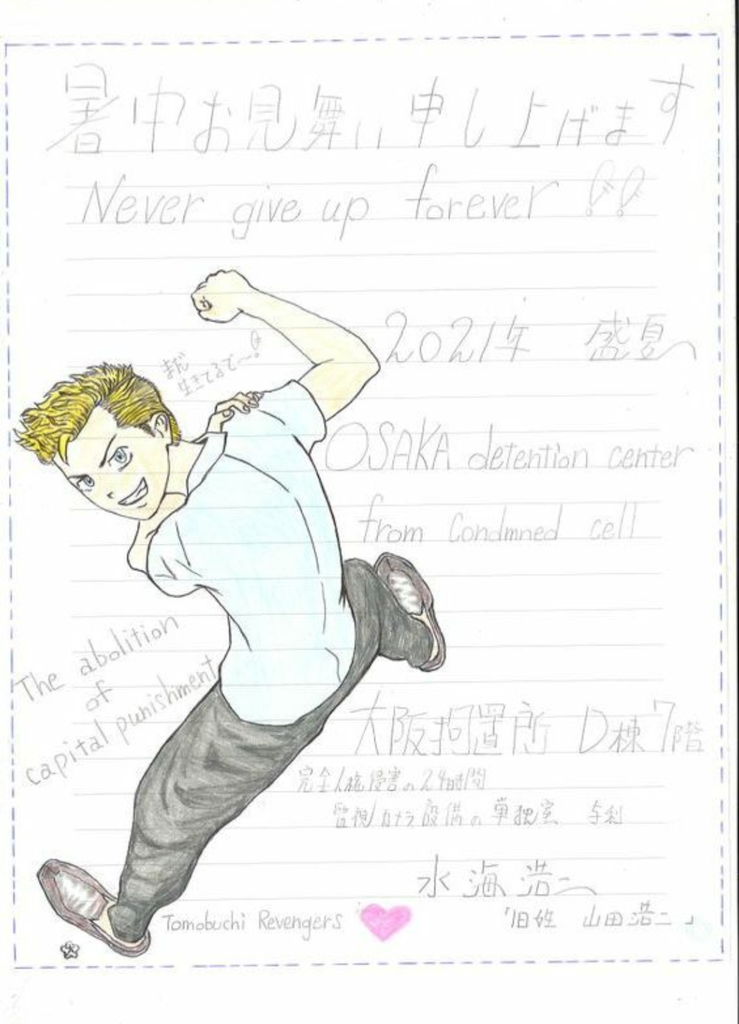 暑中お見舞い申し上げます
Never give up forever !!
2021年 盛夏
まだ
生きてるで〜!
OSAKA detention center
from Condmned cell
The abolition
of
capital punishment
大阪拘置所 D棟7階
完全人権侵害の24時間
監視カメラ設備の単独室
水海浩二
Tomobuchi Revengers
「旧姓 山田浩二」